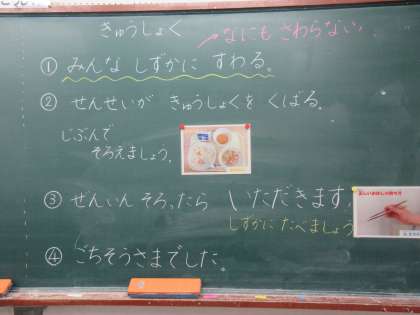 きゅうしょく
なにも さわらない。
① みんな しずかに すわる。
② せんせいが きゅうしょくを くばる。
じぶんで
そろえましょう。
③ ぜんいん そろったら いただきます。
しずかに たべましょう
④ ごちそうさまでした。